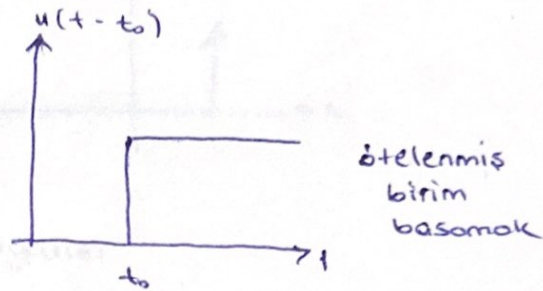 u(t - t₀)
ötelenmiş
birim
basamak
t
t₀